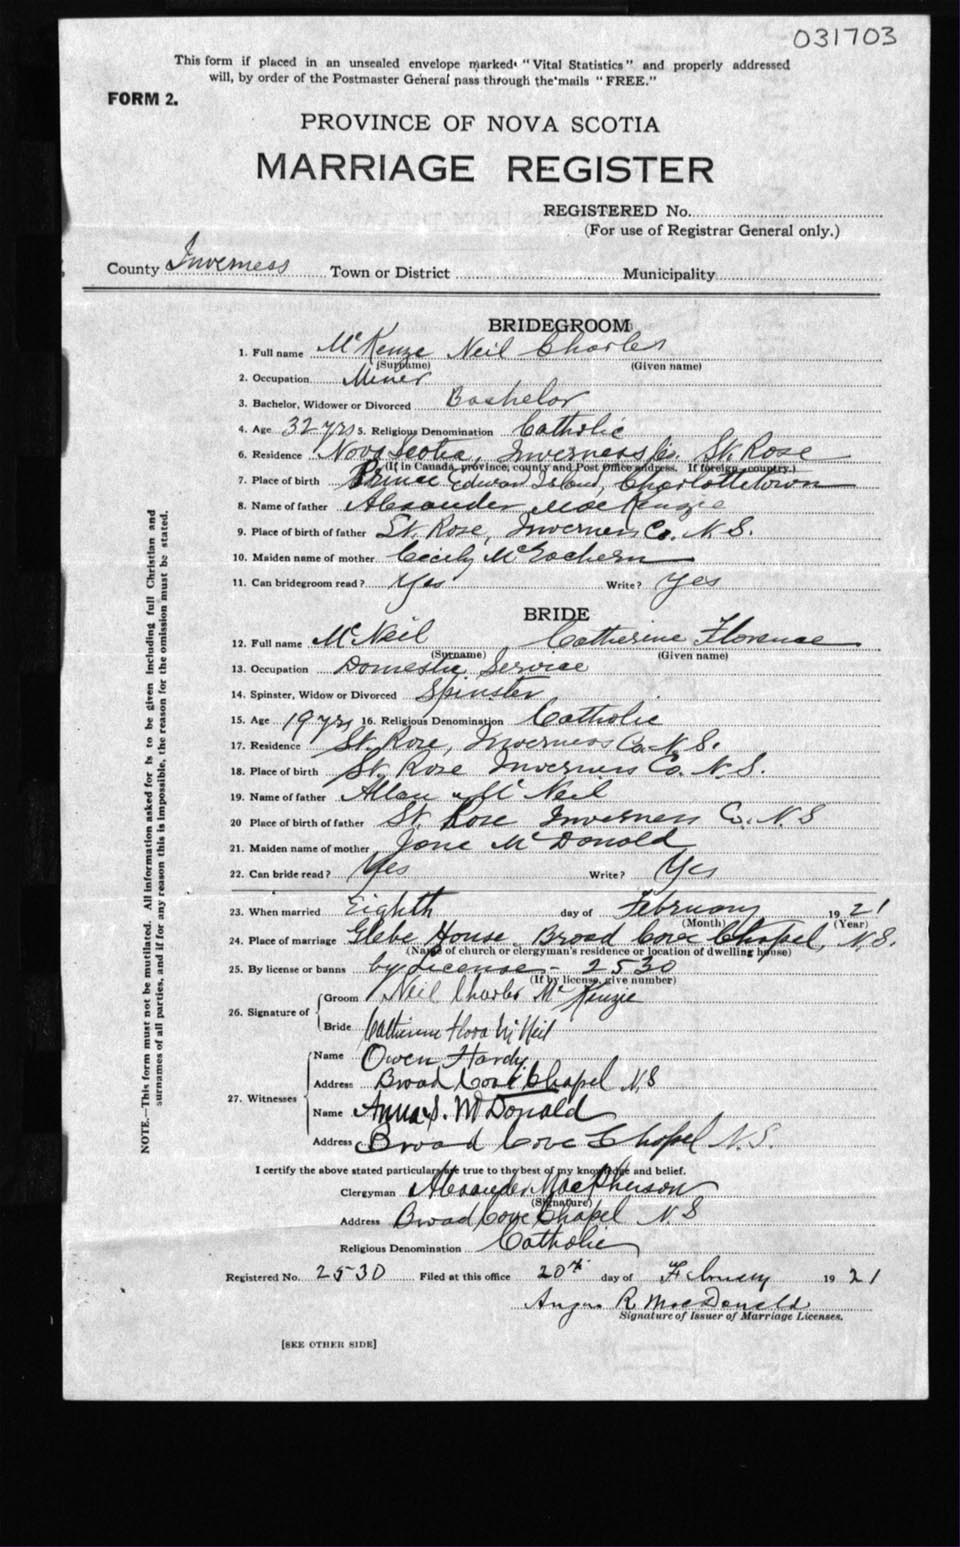 031703
This form if placed in an unsealed envelope marked "Vital Statistics" and properly addressed
will, by order of the Postmaster General pass through the mails "FREE."
FORM 2.
PROVINCE OF NOVA SCOTIA
MARRIAGE REGISTER
REGISTERED No.
(For use of Registrar General only.)
County Inverness Town or District Municipality
BRIDEGROOM
1. Full name McKenzie Neil Charles
(Surname) (Given name)
2. Occupation Miner
3. Bachelor, Widower or Divorced Bachelor
4. Age 32 yrs 5. Religious Denomination Catholic
6. Residence Nova Scotia, Inverness Co. St. Rose
(If in Canada, province, county and Post Office address. If foreign, country.)
7. Place of birth Prince Edward Island, Charlottetown
8. Name of father Alexander MacKenzie
9. Place of birth of father St. Rose, Inverness Co. N.S.
10. Maiden name of mother Cecily McEachern
11. Can bridegroom read? Yes Write? Yes
BRIDE
12. Full name McNeil Catherine Florence
(Surname) (Given name)
13. Occupation Domestic Service
14. Spinster, Widow or Divorced Spinster
15. Age 19 yrs 16. Religious Denomination Catholic
17. Residence St. Rose, Inverness Co. N.S.
18. Place of birth St. Rose Inverness Co. N.S.
19. Name of father Allan McNeil
20 Place of birth of father St. Rose Inverness Co. N.S
21. Maiden name of mother Jane McDonald
22. Can bride read? Yes Write? Yes
23. When married Eighth day of February 1921
(Month) (Year)
24. Place of marriage Glebe House Broad Cove Chapel, N.S.
(Name of church or clergyman's residence or location of dwelling house)
25. By license or banns by License - 2530
(If by license, give number)
26. Signature of Groom Neil Charles McKenzie
Bride Catherine Flora McNeil
27. Witnesses Name Owen Hardy
Address Broad Cove Chapel N.S
Name Anna S. McDonald
Address Broad Cove Chapel N.S.
I certify the above stated particulars are true to the best of my knowledge and belief.
Clergyman Alexander MacPherson
(Signature)
Address Broad Cove Chapel N.S
Religious Denomination Catholic
Registered No. 2530 Filed at this office 20th day of February 1921
Angus R. MacDonald
Signature of Issuer of Marriage Licenses.
[SEE OTHER SIDE]
NOTE.—This form must not be mutilated. All information asked for is to be given including full Christian and
surnames of all parties, and if for any reason this is impossible, the reason for the omission must be stated.